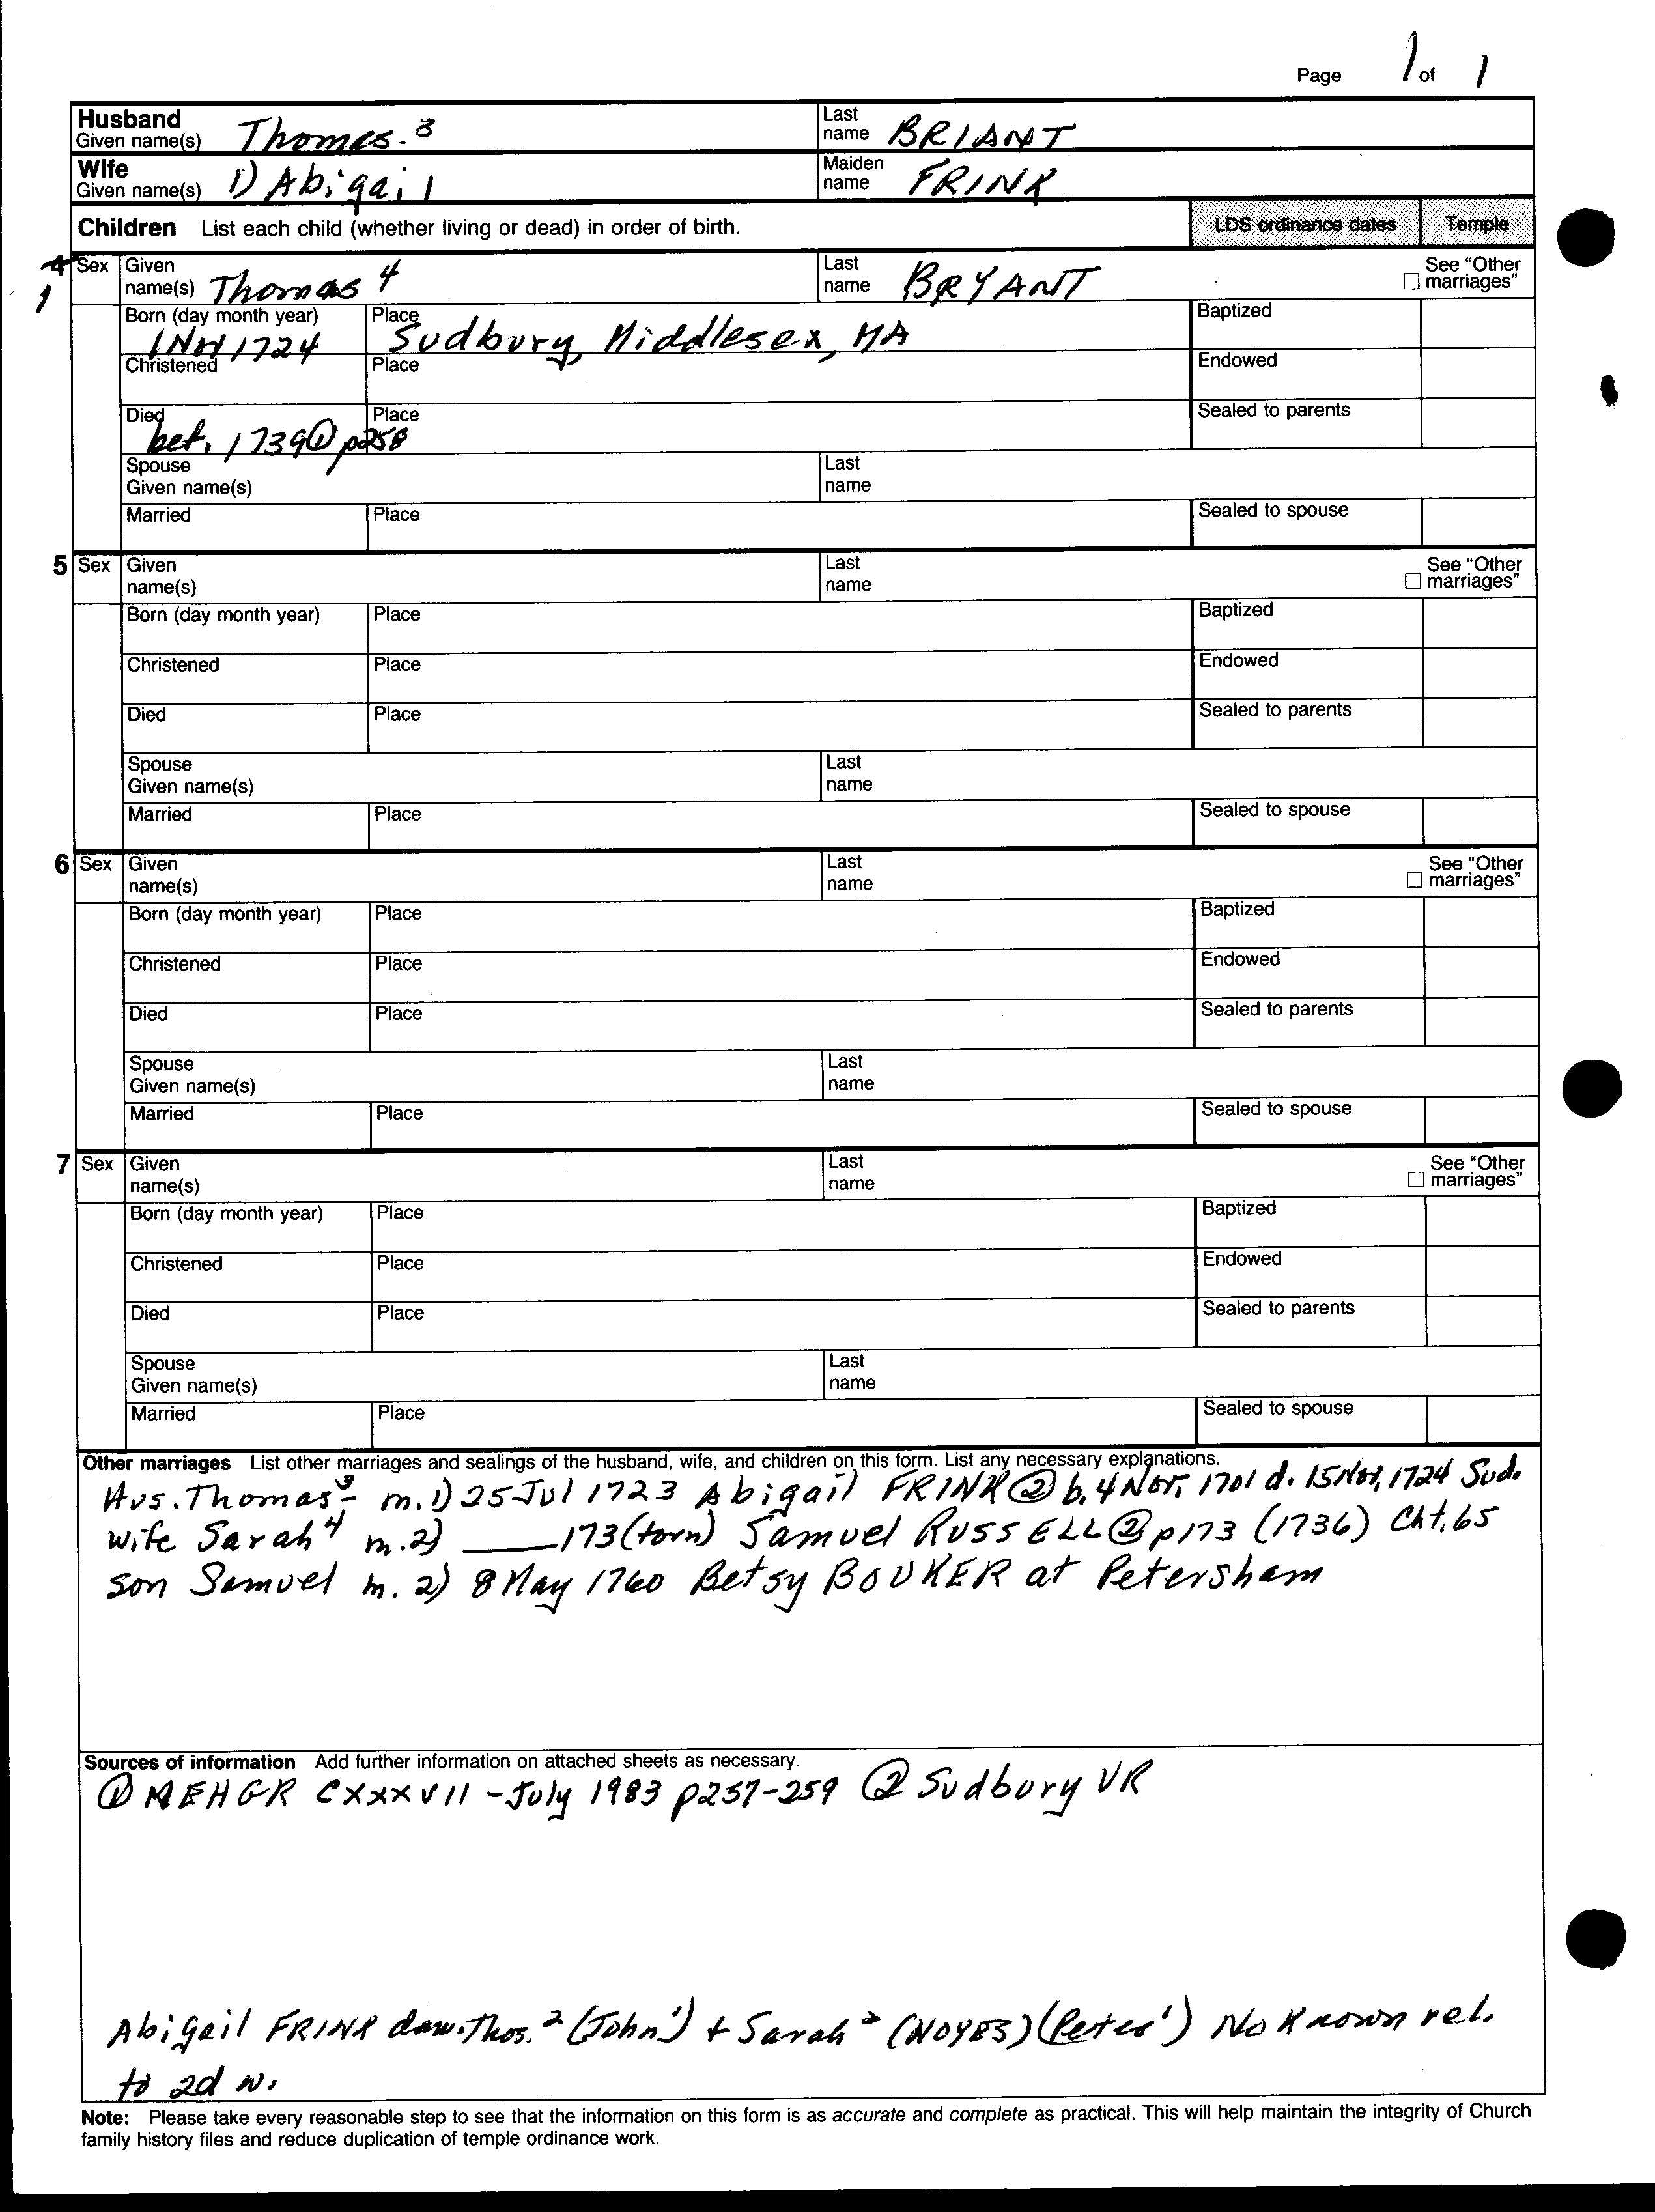 Page 1 of 1
Husband
Given name(s) Thomas.3 Last name BRIANT
Wife
Given name(s) 1) Abigail Maiden name FRINK
Children List each child (whether living or dead) in order of birth. LDS ordinance dates Temple
4 1 Sex Given name(s) Thomas 4 Last name BRYANT See "Other marriages"
Born (day month year) 1 Nov 1724 Place Sudbury, Middlesex, MA Baptized
Christened Place Endowed
Died bef. 1739 ① p258 Place Sealed to parents
Spouse
Given name(s) Last name
Married Place Sealed to spouse
5 Sex Given name(s) Last name See "Other marriages"
Born (day month year) Place Baptized
Christened Place Endowed
Died Place Sealed to parents
Spouse
Given name(s) Last name
Married Place Sealed to spouse
6 Sex Given name(s) Last name See "Other marriages"
Born (day month year) Place Baptized
Christened Place Endowed
Died Place Sealed to parents
Spouse
Given name(s) Last name
Married Place Sealed to spouse
7 Sex Given name(s) Last name See "Other marriages"
Born (day month year) Place Baptized
Christened Place Endowed
Died Place Sealed to parents
Spouse
Given name(s) Last name
Married Place Sealed to spouse
Other marriages List other marriages and sealings of the husband, wife, and children on this form. List any necessary explanations.
Hus. Thomas3- m. 1) 25 Jul 1723 Abigail FRINK ② b. 4 Nov, 1701 d. 15 Nov, 1724 Sud.
wife Sarah 4 m. 2) ___ 173(torn) Samuel RUSSELL ② p173 (1736) Cht. 65
son Samuel m. 2) 8 May 1760 Betsy BOUKER at Petersham
Sources of information Add further information on attached sheets as necessary.
① NEHGR CXXXVII - July 1983 p257-259 ② Sudbury VR
Abigail FRINK dau. Thos. 2 (John1) + Sarah 2 (NOYES) (Peter1) No Known rel.
to 2d w.
Note: Please take every reasonable step to see that the information on this form is as accurate and complete as practical. This will help maintain the integrity of Church
family history files and reduce duplication of temple ordinance work.